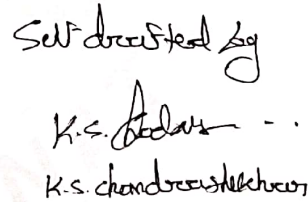 Self-drafted by
K.S.
K.S. Chandrashekhran